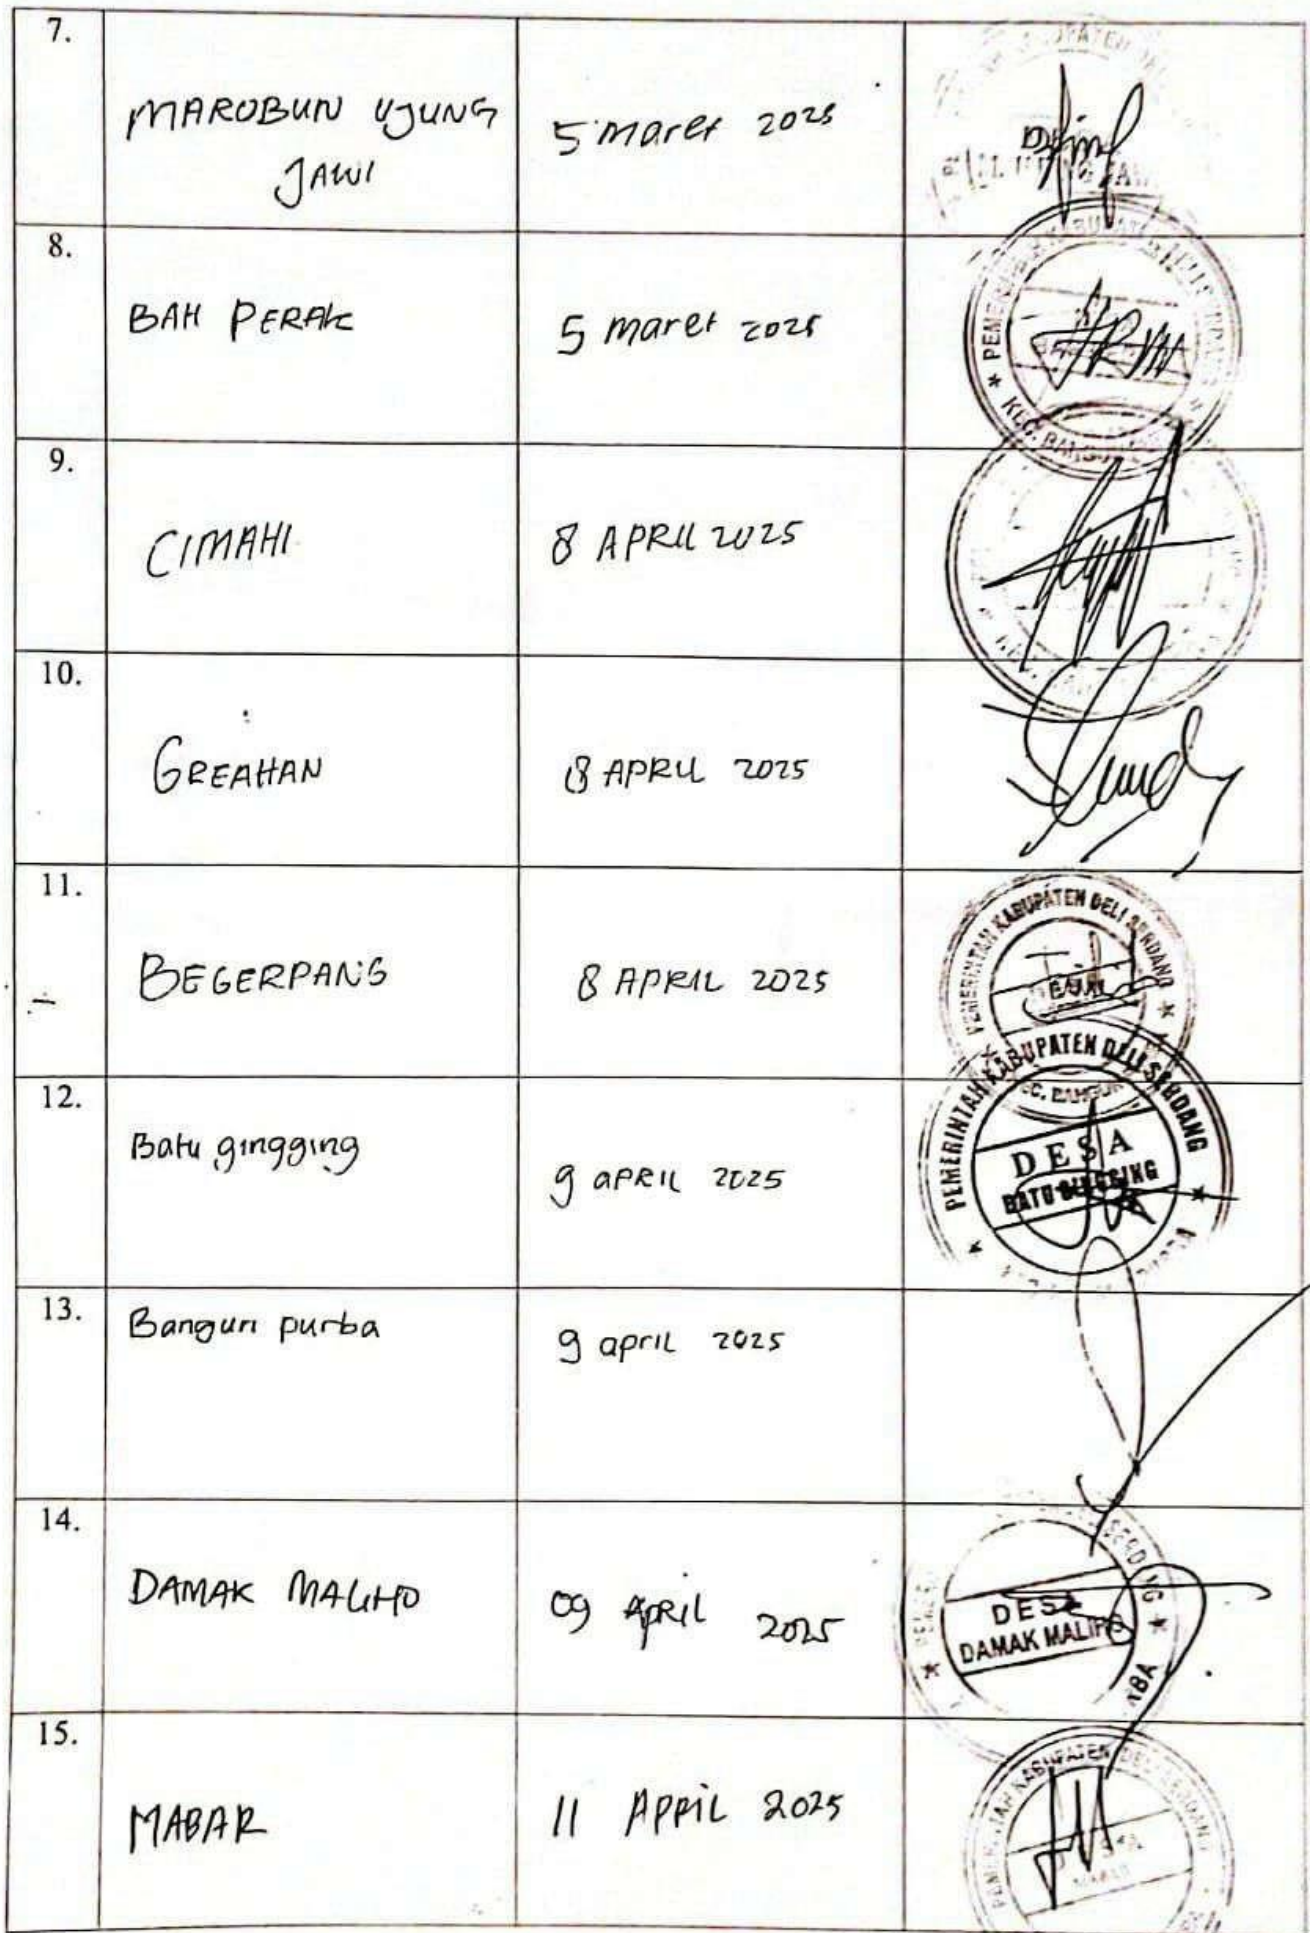 7.
MAROBUN UJUNG
JAWI
5 maret 2025
8.
BAH PERAK
5 maret 2025
PEMERINTAH KABUPATEN DELI SERDANG
KEC. BANGUN
9.
CIMAHI
8 APRIL 2025
10.
GREAHAN
8 APRIL 2025
11.
BEGERPANG
8 APRIL 2025
PEMERINTAH KABUPATEN DELI SERDANG
KEC. BANGUN
12.
Batu gingging
9 APRIL 2025
PEMERINTAH KABUPATEN DELI SERDANG
DESA
BATU GINGGING
13.
Bangun purba
9 april 2025
14.
DAMAK MALIHO
09 April 2025
DESA
DAMAK MALIHO
15.
MABAR
11 April 2025
PEMERINTAH KABUPATEN DELI SERDANG
DESA
MABAR